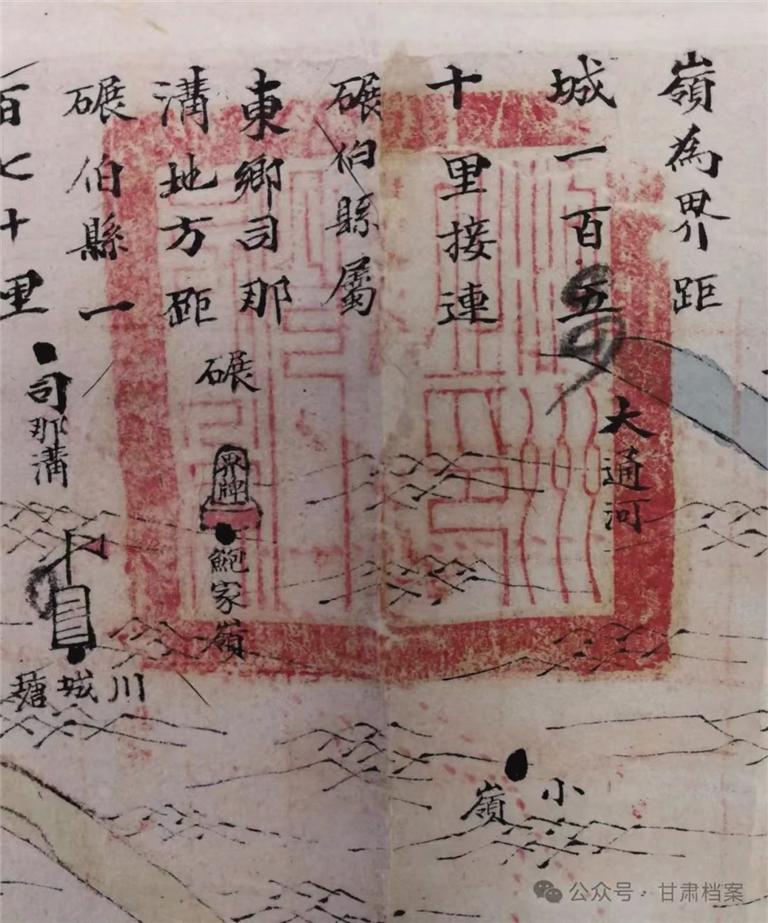 嶺為界距
城一百五
十里接連
碾伯縣屬
東鄉司那
溝地方距
碾伯縣一
百七十里
大通河
碾
界牌
鮑家嶺
司那溝
川城塘
小嶺
公众号·甘肃档案